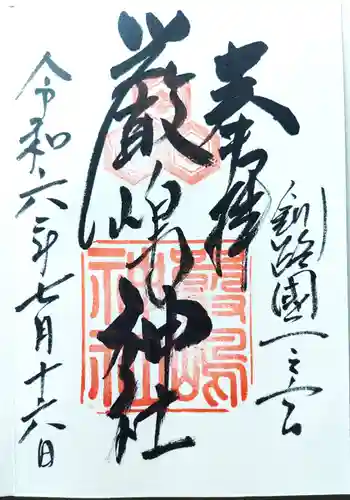 奉拝
釧路國一之宮
厳嶋神社
厳嶋神社
令和六年七月十六日